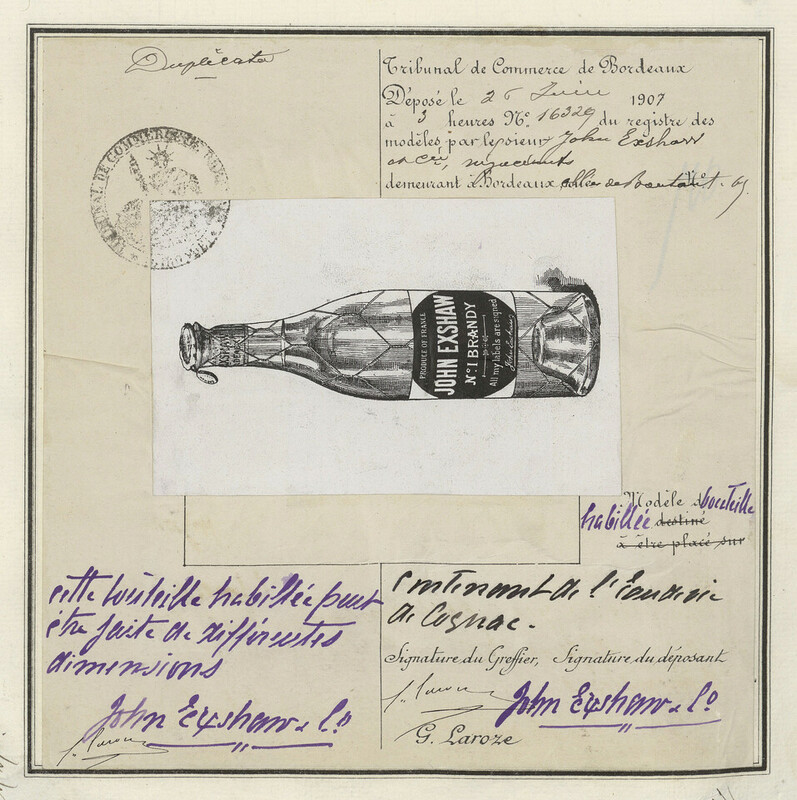 Duplicata
Tribunal de Commerce de Bordeaux
Déposé le 26 Juin 1907
à 3 heures No. 16329 du registre des
modèles par le sieur John Exshaw
et Cie, négociants
demeurant à Bordeaux allées de Boutaut No. 69
TRIBUNAL DE COMMERCE DE
PRODUCE OF FRANCE
JOHN EXSHAW
No. 1 BRANDY
All my labels are signed
John Exshaw
Modèle de bouteille
habillée destiné
à être placé sur
cette bouteille habillée peut
être faite de différentes
dimensions
John Exshaw & Co
contenant de l'Eau de vie
de Cognac.
Signature du Greffier, Signature du déposant
John Exshaw & Co
G. Laroze